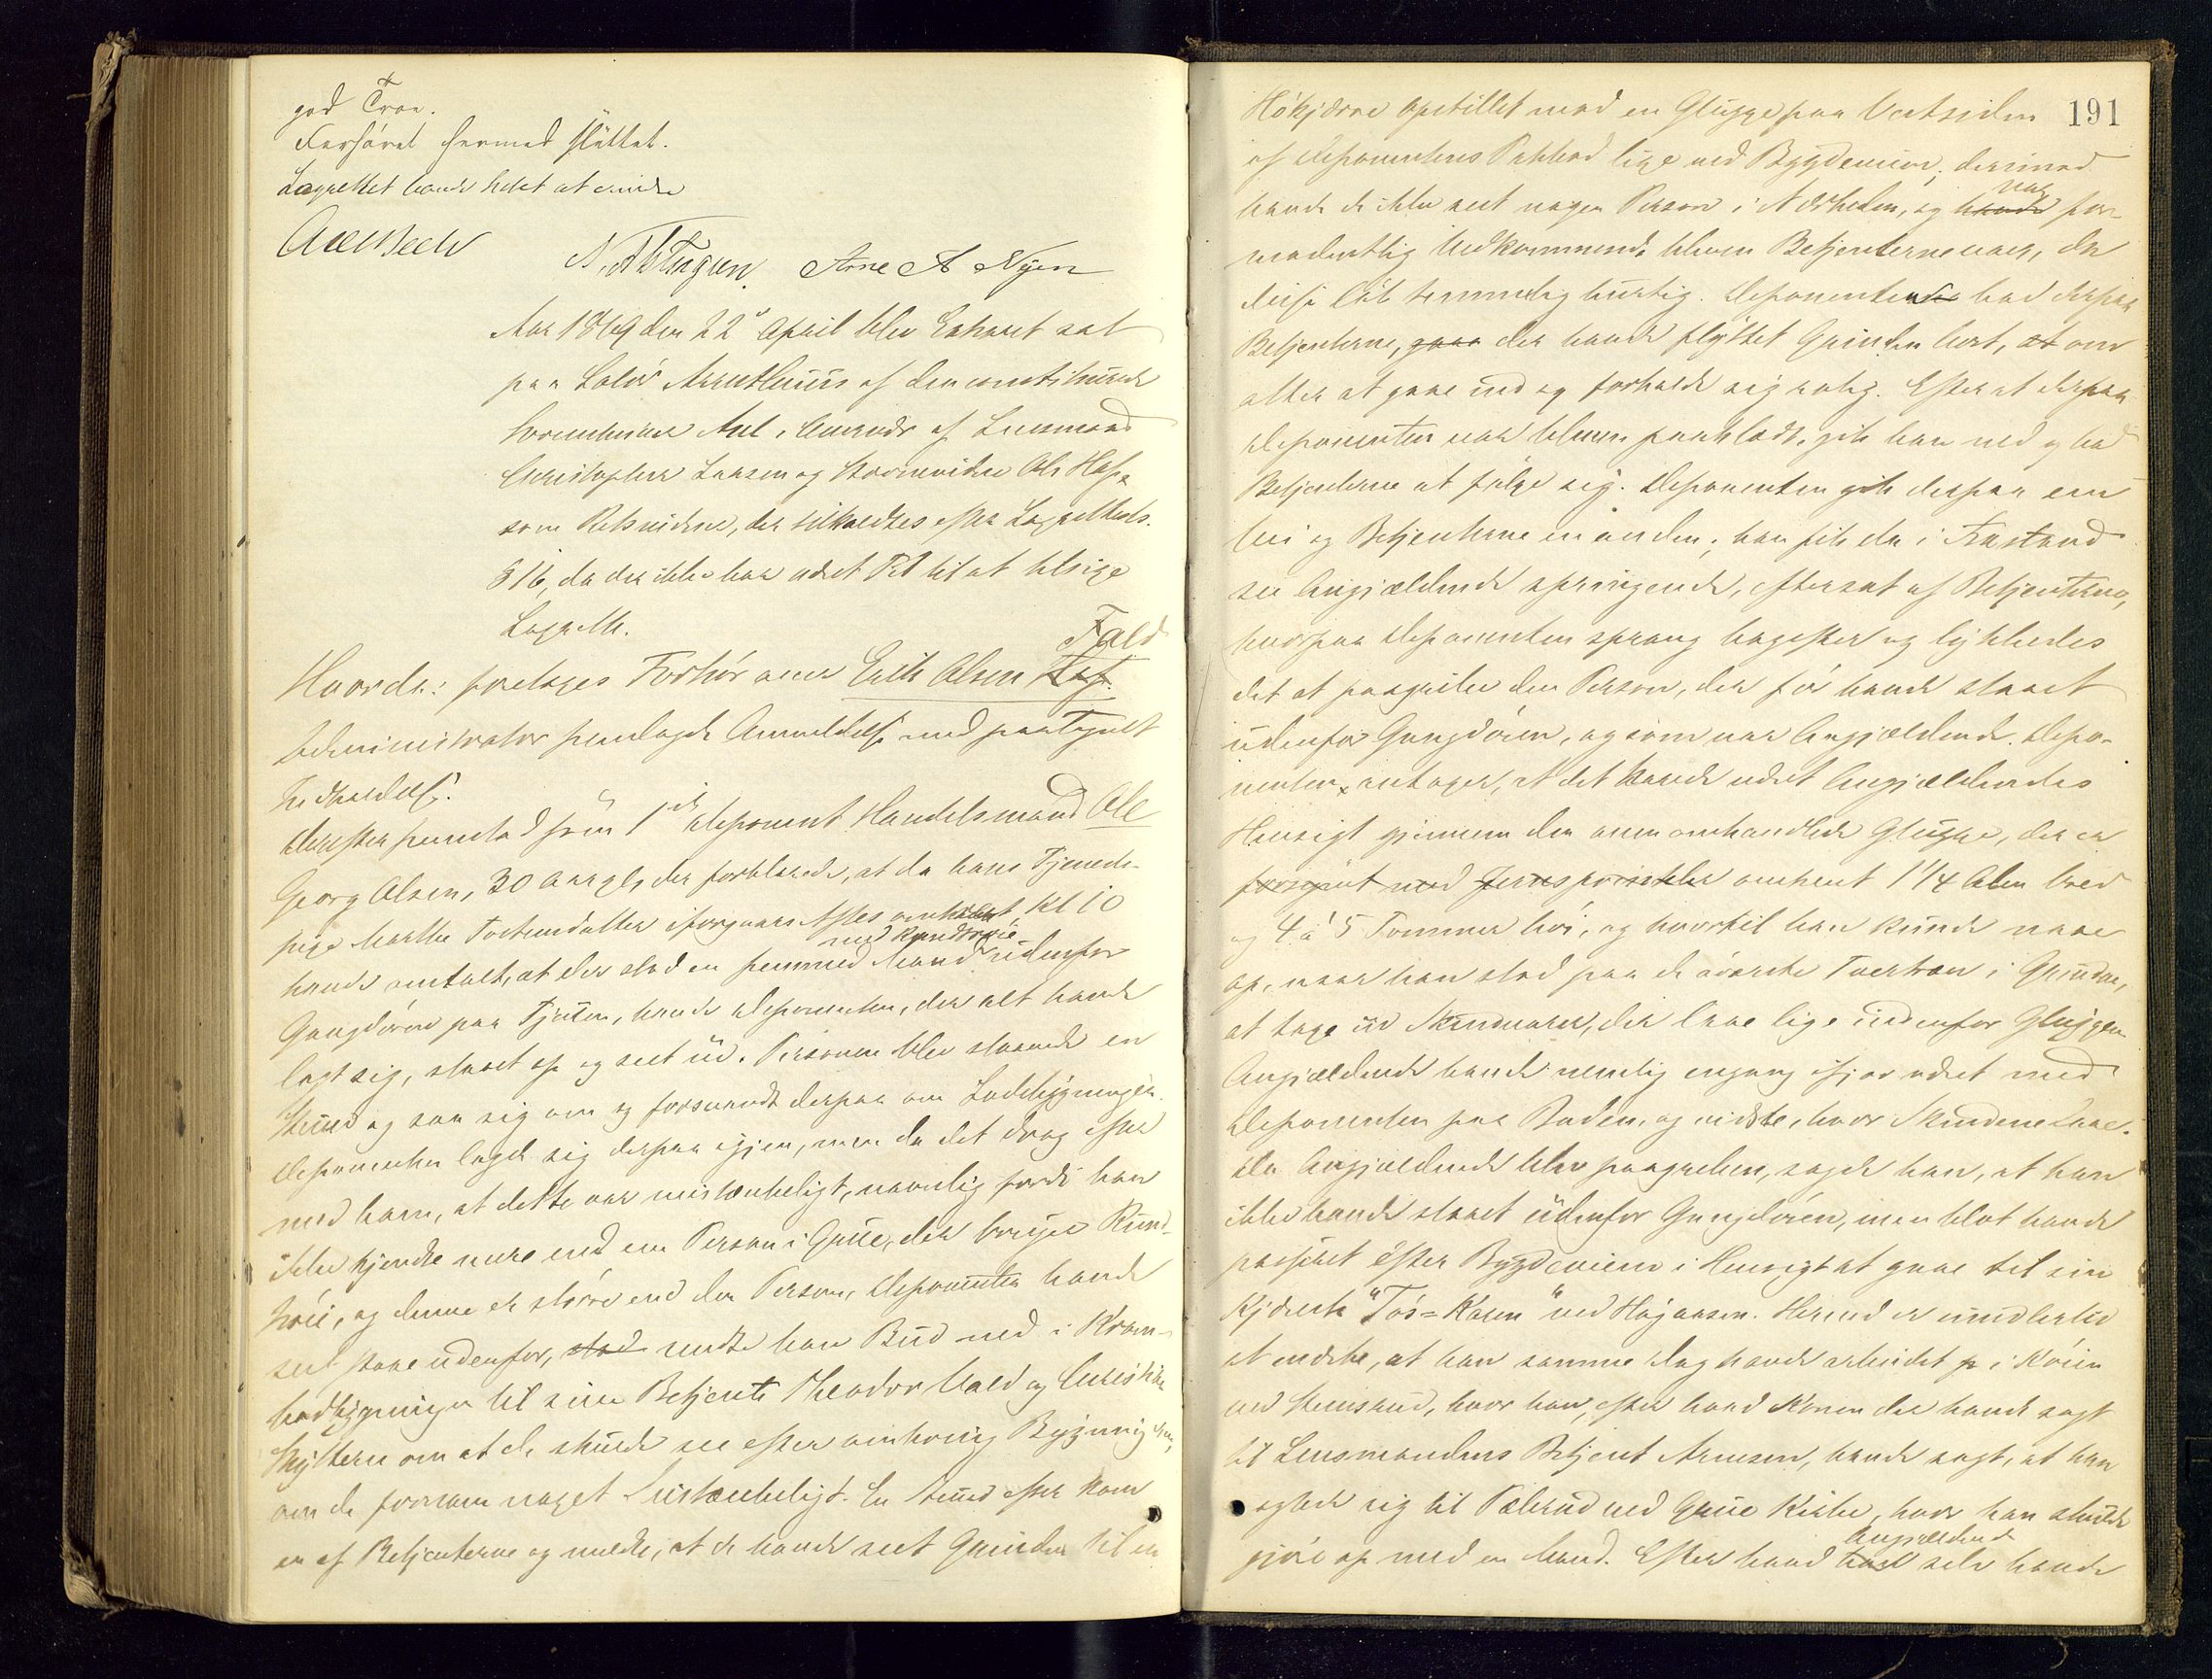 god Troe.
Forhøret hermed sluttet.
Lagrettet havde Intet at erindre
N. A. Arne A Nyen
Aar 1869 den 22de April blev Extraret sat
paa Solør Arresthuus af den constituerede
Sorenskriver Aul, Overvær af Lensmand
Christopher Larsen og Stevnevidne Ole
som Retsvidner, der tilkaldtes efter Lagrettesl.
§ 16, da der ikke har været Tid til at tilsige
Lagrette.
Fald
Hvorda: foretoges Forhør over Erik Olsen
Administrator fremlagde Anmeldelse med paategnet
Fastholdelse.
Derefter fremstod som 1ste Deponent Handelsmand Ole
Georg Olsen, 30 Aar gl, der forklarede, at da hans Tjeneste-
pige Marthe Torstensdatter iforgaars Aftes omtrent Kl 10
med Rundtrøie
havde omtalt, at der stod en fremmed Mand udenfor
Gangdøren paa Tjuen, havde Deponenten, der alt havde
lagt sig, staaet op og seet ud. Personen blev staaende en
Stund og saa sig om og forsvandt derpaa om Ladebygningen.
Deponenten lagde sig derpaa igjen, men da det drog efter
med ham, at dette var mistænkeligt, navnlig fordi han
ikke kjendte mere end en Person i Grue, der bruger Rund-
trøie, og denne er større end den Person, Deponenten havde
seet staae udenfor, sendte han Bud ned i Kram-
bodbygningen til sine Betjente Theodor Uald og Christian
om at de skulde see efter omkring Bygningerne,
om de fornam noget Mistænkeligt. En Stund efter kom
en af Betjenterne og meldte, at de havde seet Grinden til en
191
Høkjærre opstillet mod en Glugge paa Vestsiden
af Deponentens Pakbod lige ved Bygdeveien; derimod
var
havde de ikke seet nogen Person i Nærheden, og havde for-
modentlig Vedkommende bleven Betjenterne vaer, da
disse løb temmelig hurtig. Deponenten bad derpaa
Betjenterne, der havde flyttet Grinden bort, at om
atter at gaae ind og forholde sig rolig. Efter at derpaa
Deponenten var bleven paaklædt, gik han ned og bad
Betjenterne at følge sig. Deponenten gik derpaa een
Vei og Betjenterne en anden; han fik da i Frastand
see Angjældende springende, eftersat af Betjenterne,
hvorpaa Deponenten sprang bagefter og lykkedes
det at paagribe den Person, der før havde staaet
udenfor Gangdøren, og som var Angjældende. Depo-
nenten antager, at det havde været Angjældendes
Hensigt gjennem den ovenomhandlede Glugge, der er
forsynet med Jernsprinkler omtrent 1 1/4 Alen bred
og 4 á 5 Tommer høi, og hvortil han kunde naae
op, naar han stod paa de øverste Tvertræn i Grinden,
at tage ud Skindvarer, der laae lige indenfor Gluggen
Angjældende havde nemlig engang ifjor været med
Deponenten paa Boden, og vidste, hvor Skindene laae.
Da Angjældende blev paagreben, sagde han, at han
ikke havde staaet udenfor Gangdøren, men blot havde
passeret efter Bygdeveien i Hensigt at gaae til sin
Kjæreste "Tøs=Karen" ved Hagaasen. Herved er imidlertid
at mærke, at han samme Dag havde arbeidet p i Kroien
ved Steensrud, hvor han, efter hvad Konen der havde sagt
til Lensmandens Betjent Arnesen, havde sagt, at han
agtede sig til Pælerud ved Grue Kirke, hvor han skulde
Angjældende
gjøre op med en Mand. Efter hvad han selv havde